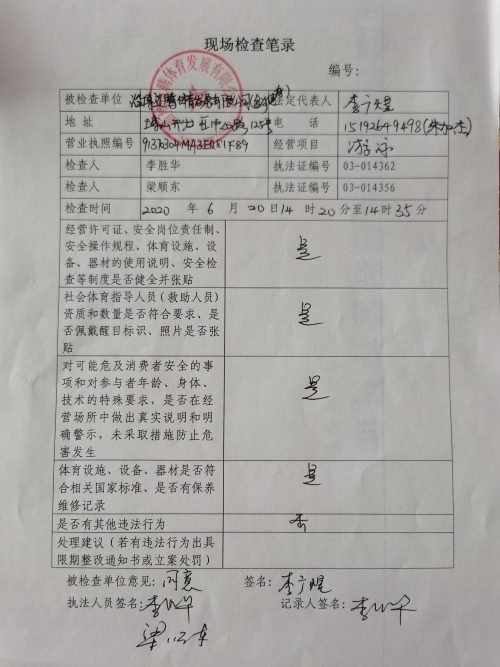 现场检查笔录
编号：
被检查单位 法定代表人 李广煜
地 址 电 话 15192649498
营业执照编号 经营项目 游泳
检查人 李胜华 执法证编号 03-014362
检查人 梁顺东 执法证编号 03-014356
检查时间 2020 年 6 月 20日14 时20分至14时35分
经营许可证、安全岗位责任制、
安全操作规程、体育设施、设
备、器材的使用说明、安全检
查等制度是否健全并张贴
是
社会体育指导人员（救助人员）
资质和数量是否符合要求、是
否佩戴醒目标识、照片是否张
贴
是
对可能危及消费者安全的事
项和对参与者年龄、身体、
技术的特殊要求，是否在经
营场所中做出真实说明和明
确警示，未采取措施防止危
害发生
是
体育设施、设备、器材是否符
合相关国家标准、是否有保养
维修记录
是
是否有其他违法行为 否
处理建议（若有违法行为出具
限期整改通知书或立案处罚）
被检查单位意见：同意 签名：李广煜
执法人员签名： 记录人签名：